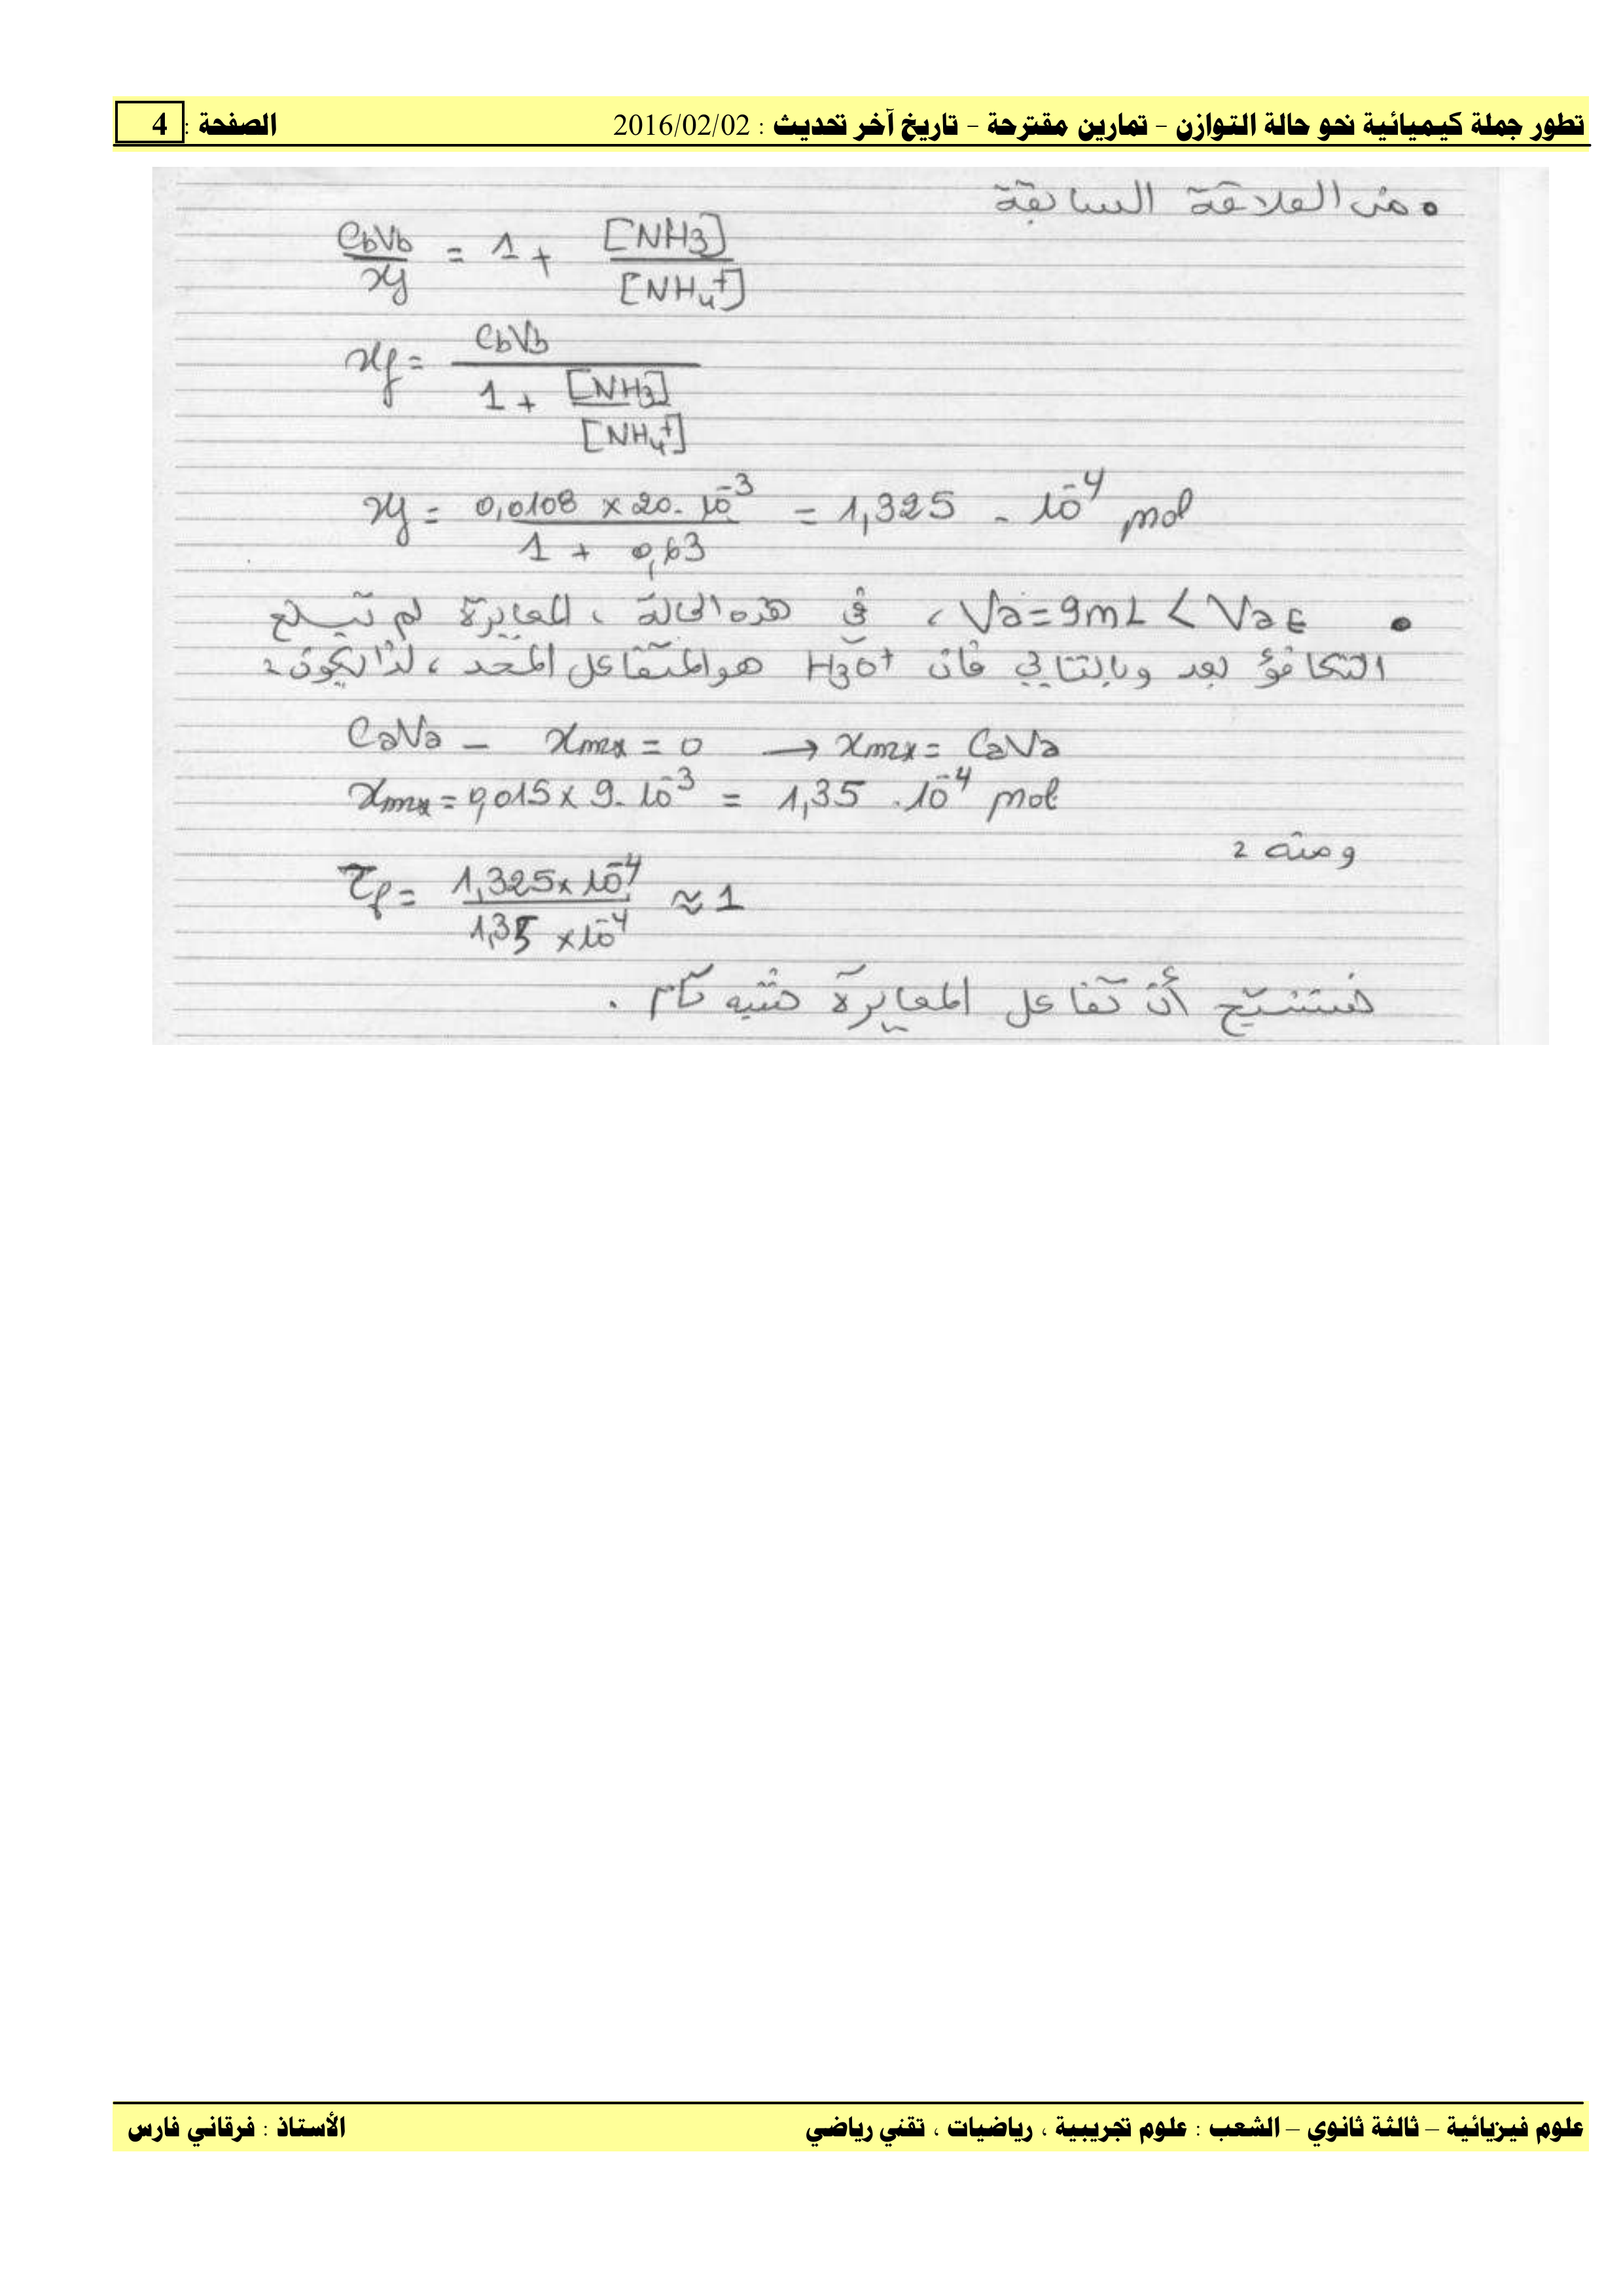 تطور جملة كيميائية نحو حالة التوازن – تمارين مقترحة – تاريخ آخر تحديث : 2016/02/02 الصفحة : 4
• من العلاقة السابقة
CbVb/xf = 1 + [NH3]/[NH4+]
xf = CbVb / (1 + [NH3]/[NH4+])
xf = 0,0108 × 20.10^-3 / (1 + 0,63) = 1,325 . 10^-4 mol
• Va = 9mL < VaE ، في هذه الحالة ، المعايرة لم تبلغ
التكافؤ بعد وبالتالي فان H3O+ هو المتفاعل المحد ، لذا يكون :
CaVa – xmax = 0 → xmax = CaVa
xmax = 0,015 × 9.10^-3 = 1,35 .10^-4 mol
ومنه :
τf = 1,325×10^-4 / 1,35×10^-4 ≈ 1
نستنتج أن تفاعل المعايرة شبه تام .
علوم فيزيائية – ثالثة ثانوي – الشعب : علوم تجريبية ، رياضيات ، تقني رياضي الأستاذ : فرقاني فارس